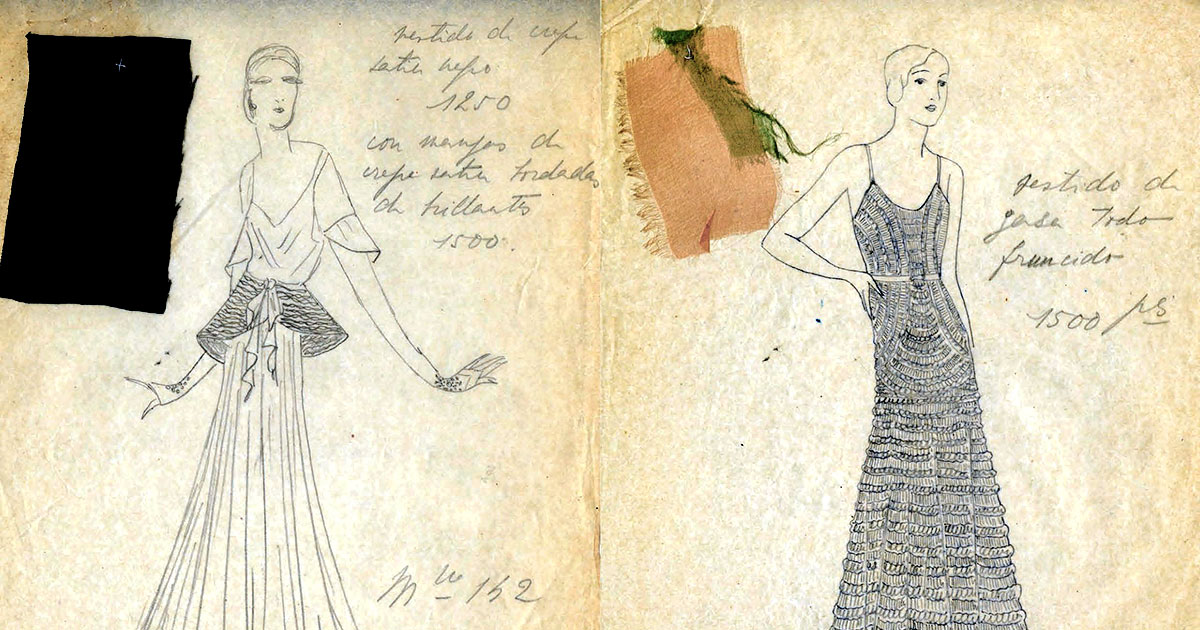 vestido de crepe
satin negro
1250
con mangas de
crepe satin bordadas
de brillantes
1500.
Mlle 142
vestido de
gasa todo
fruncido
1500 ps